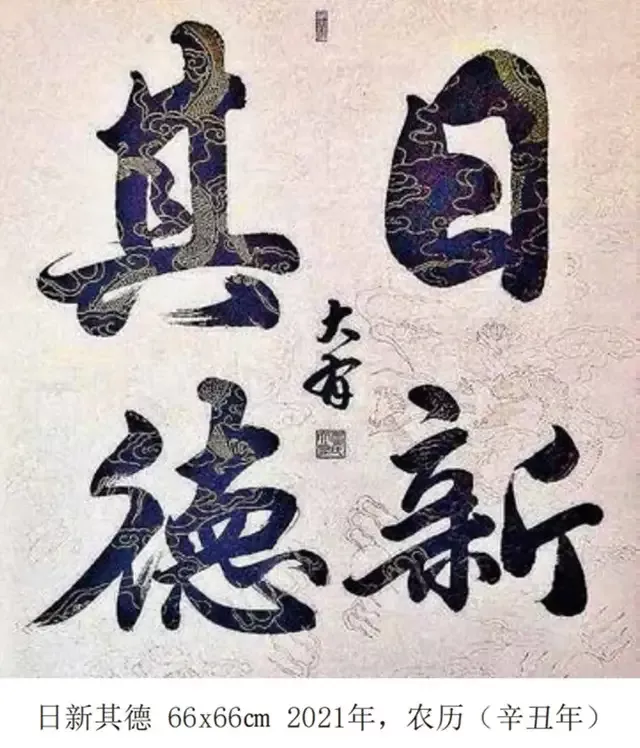 日新
其德
大有
日新其德 66x66cm 2021年，农历（辛丑年）